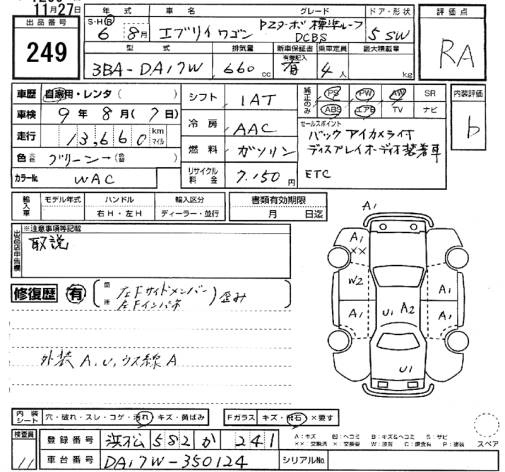 11月27日
S・H・R グレード ドア・形状 評価点
出品番号 6年 8月 エブリイワゴン PZターボ 標準ルーフ DCBS 5 5W RA
249
型式 排気量 新車保証書 乗車定員 最大積載量
有 記録簿 3BA-DA17W 660cc 有 4人 kg
車歴 自家用・レンタ( ) シフト 1AT 純正のみ PS PW AW SR 内装評価
ABS エアB TV ナビ b
車検 9年 8月( 7日) 冷房 AAC セールスポイント
走行 13,660 km マイル バックアイカメラ付
色 グリーン→ 燃料 ガソリン ディスプレイオーディオ装着車
カラーNo. WAC リサイクル料金 7,150円 ETC
輸入車 モデル年式 ハンドル 輸入区分 書類有効期限
右H・左H ディーラー・並行 月 日迄
出品店申告欄 ※注意事項等記載
取説
修復歴 有 箇所 左Fサイドメンバー
左Fインパネ 歪み
外装A,U,ウス線A
A1
A1
××
W2 A1
U1 A2
A1 A1
U1
内装シート 穴・破れ・スレ・コゲ・汚れ・キズ・黄ばみ Fガラス キズ・飛石・×要す
検査員 11
登録番号 浜松 582 か 241
A:キズ U:ヘコミ B:キズ&ヘコミ S:サビ
スペア
車台番号 DA17W-350124 シリアルNo.